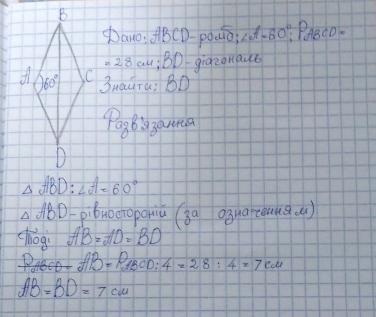 B
Дано: ABCD-ромб; ∠A=60°; PABCD=
=28 см; BD-діагональ
A 60° C
Знайти: BD
Розв'язання
D
△ ABD: ∠A=60°
△ ABD-рівносторонній (за означенням)
Тоді AB=AD=BD
PABCD= AB=PABCD:4=28:4=7см
AB=BD=7см